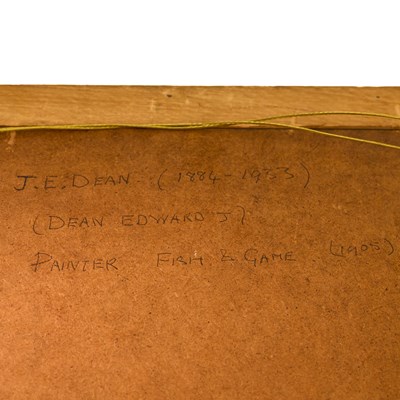 J.E. DEAN. (1884-1933)
(DEAN EDWARD J)
PAINTER FISH & GAME (1905)